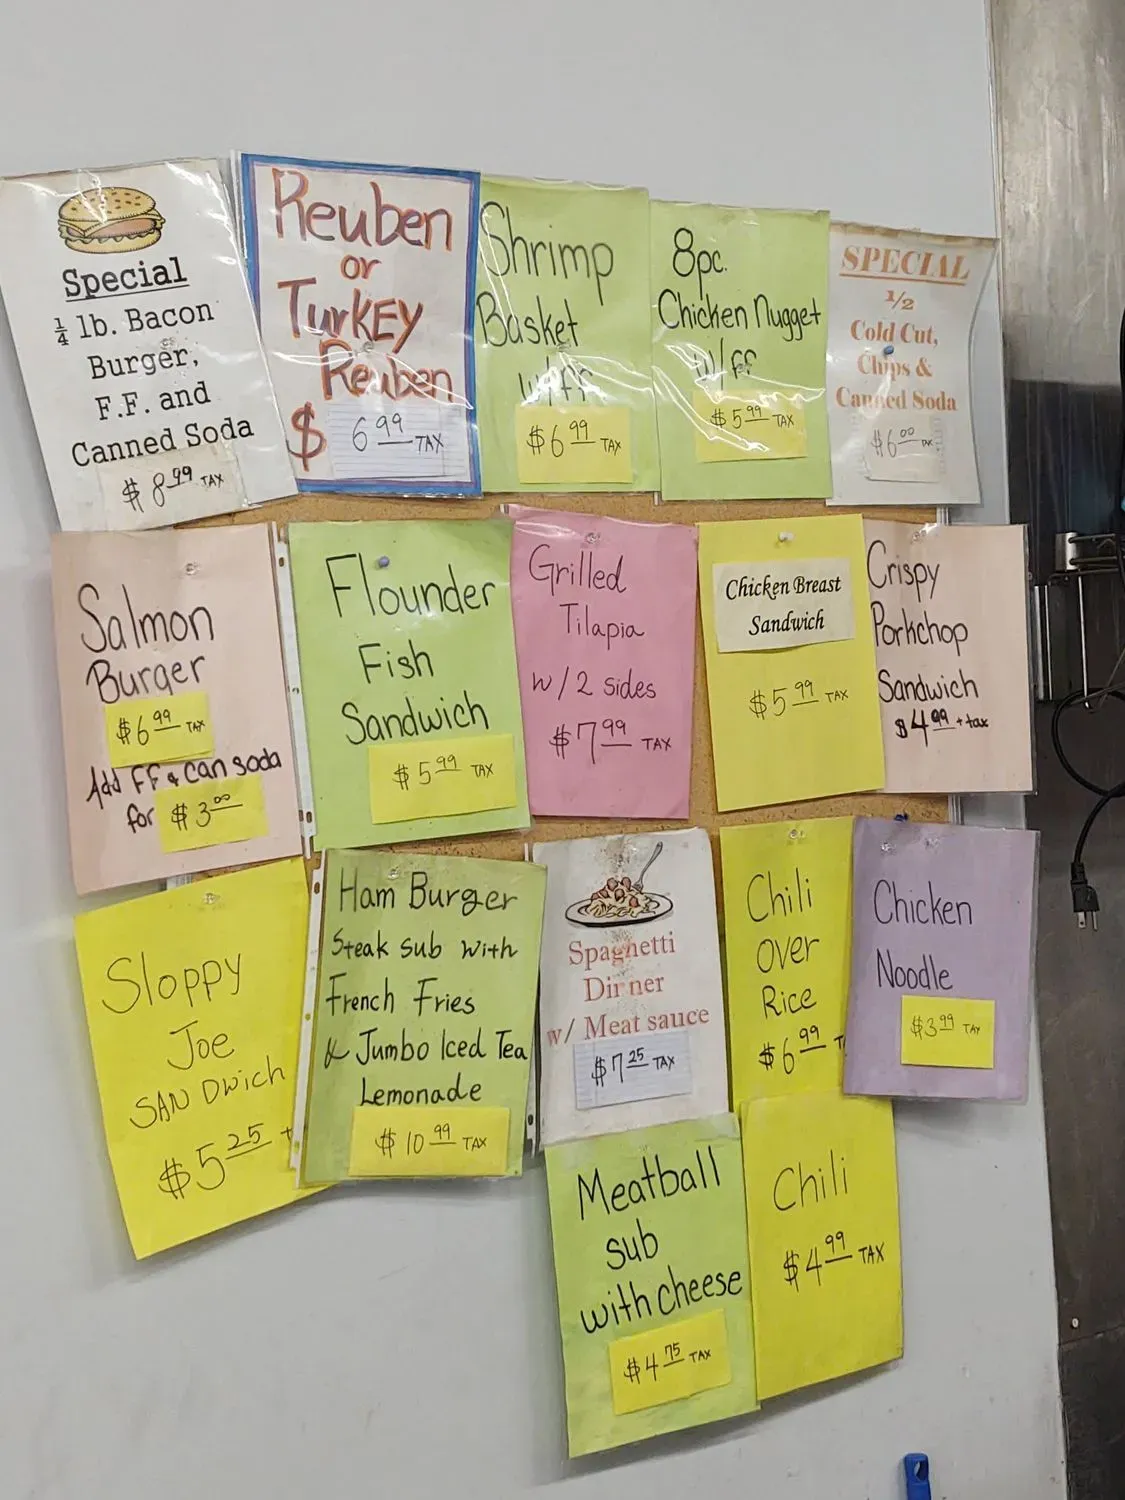 Special
¼ lb. Bacon
Burger,
F.F. and
Canned Soda
$ 8.99 TAX
Reuben
or
TurKEY
Reuben
$ 6 99 TAX
Shrimp
Basket
w/ff
$6 99 TAX
8pc.
Chicken Nugget
w/ff
$5 99 TAX
SPECIAL
1/2
Cold Cut,
Chips &
Canned Soda
$6 00 TAX
Salmon
Burger
$6 99 TAX
Add FF & can soda
for $3 00
Flounder
Fish
Sandwich
$5 99 TAX
Grilled
Tilapia
w/2 sides
$7 99 TAX
Chicken Breast
Sandwich
$5 99 TAX
Crispy
Porkchop
Sandwich
$4 99 + tax
Sloppy
Joe
SANDwich
$5 25 +
Ham Burger
Steak sub with
French Fries
& Jumbo Iced Tea
Lemonade
$10 99 TAX
Spaghetti
Dinner
w/ Meat sauce
$7 25 TAX
Chili
over
Rice
$6 99 T
Chicken
Noodle
$3 99 TAX
Meatball
sub
with cheese
$4 75 TAX
Chili
$4 99 TAX